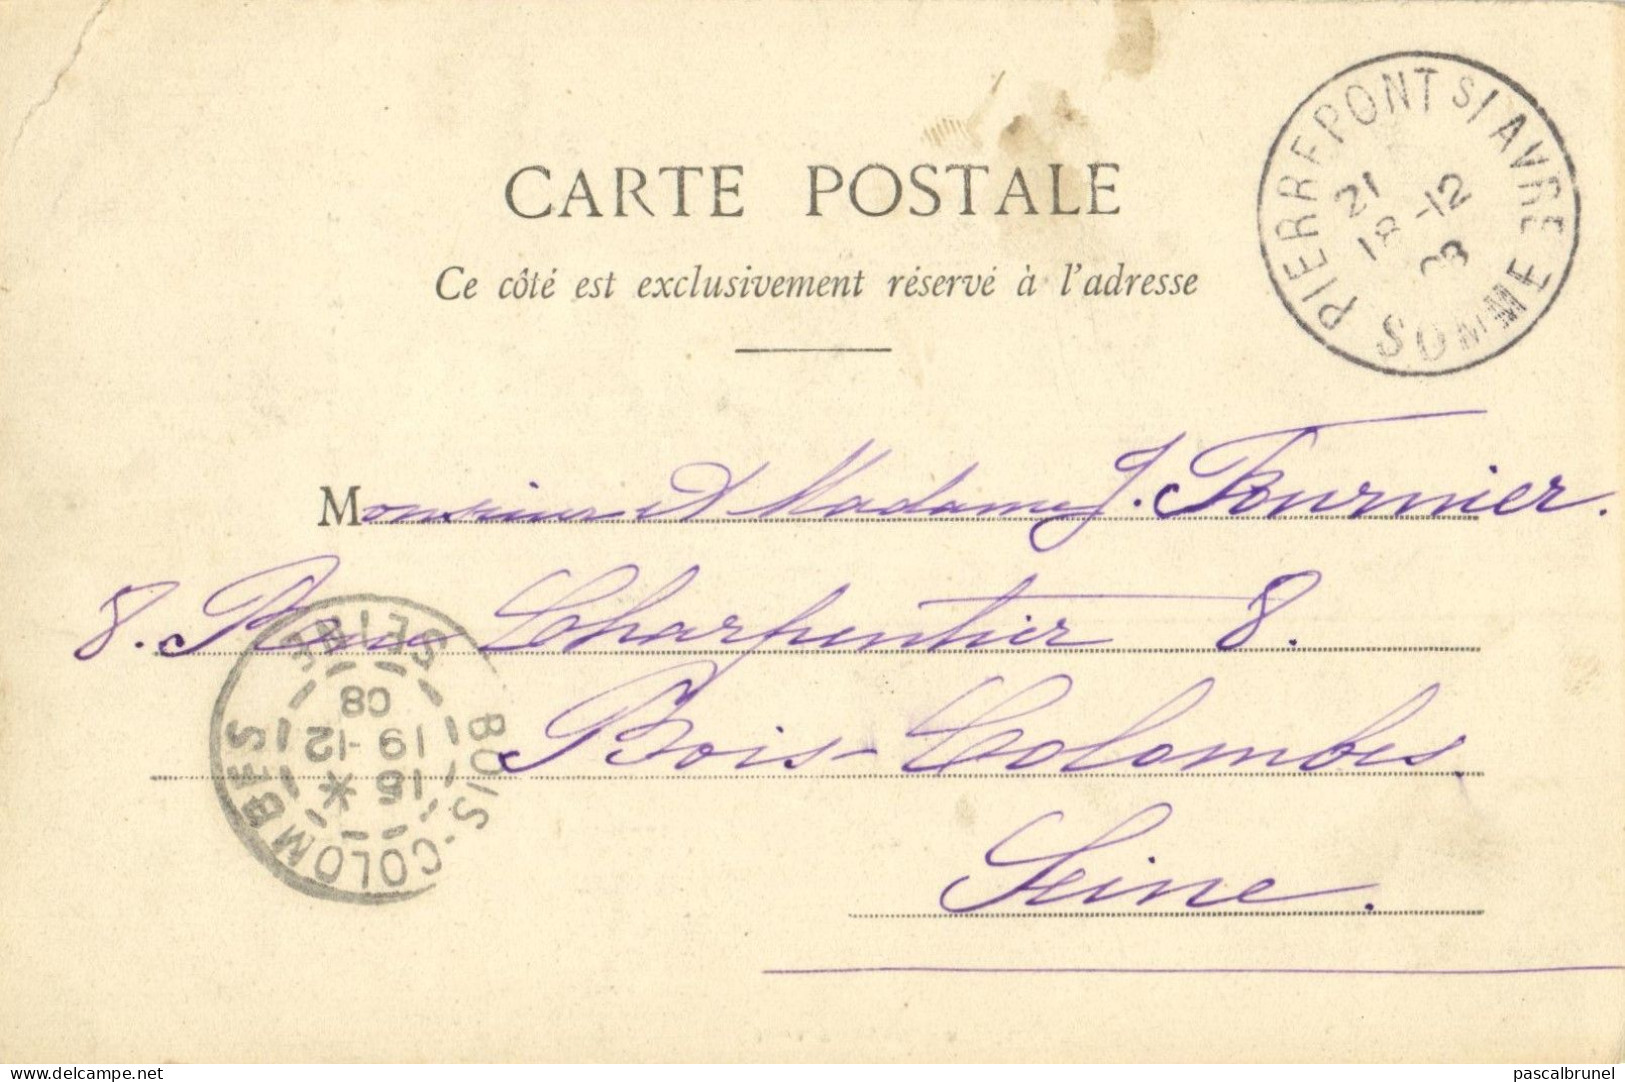 CARTE POSTALE
Ce côté est exclusivement réservé à l'adresse
PIERREPONT S/ AVRE
21
18 -12
08
SOMME
Monsieur et Madame J. Fournier.
8. Rue Charpentier 8.
Bois-Colombes.
Seine.
BOIS-COLOMBES
15 *
19 -12
08
SEINE
delcampe.net
pascalbrunel